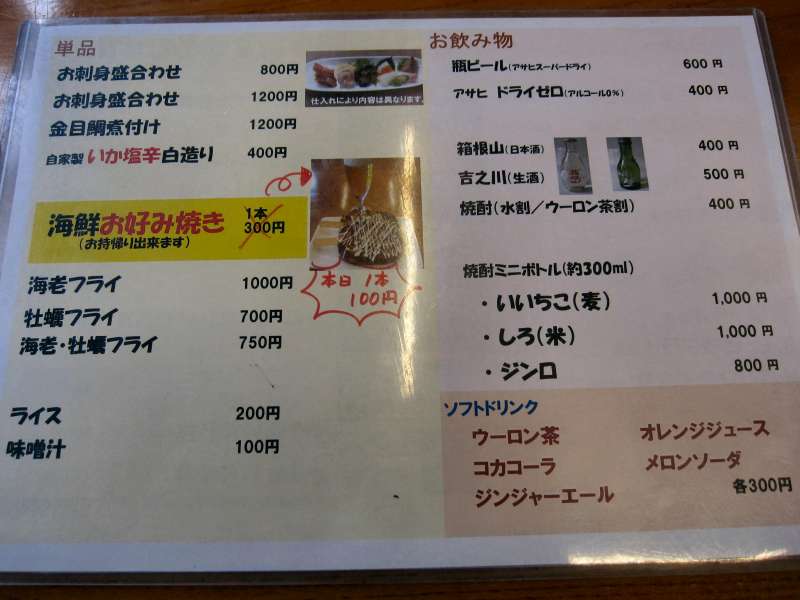 単品
お刺身盛合わせ 800円
お刺身盛合わせ 1200円
仕入れにより内容は異なります。
金目鯛煮付け 1200円
自家製 いか塩辛白造り 400円
海鮮お好み焼き 1本 300円
(お持帰り出来ます)
本日 1本
100円
海老フライ 1000円
牡蠣フライ 700円
海老・牡蠣フライ 750円
ライス 200円
味噌汁 100円
お飲み物
瓶ビール(アサヒスーパードライ) 600 円
アサヒ ドライゼロ(アルコール0%) 400 円
箱根山(日本酒) 400 円
吉之川(生酒) 500 円
焼酎(水割/ウーロン茶割) 400 円
焼酎ミニボトル(約300ml)
・いいちこ(麦) 1,000 円
・しろ(米) 1,000 円
・ジンロ 800 円
ソフトドリンク
ウーロン茶 オレンジジュース
コカコーラ メロンソーダ
ジンジャーエール 各300円